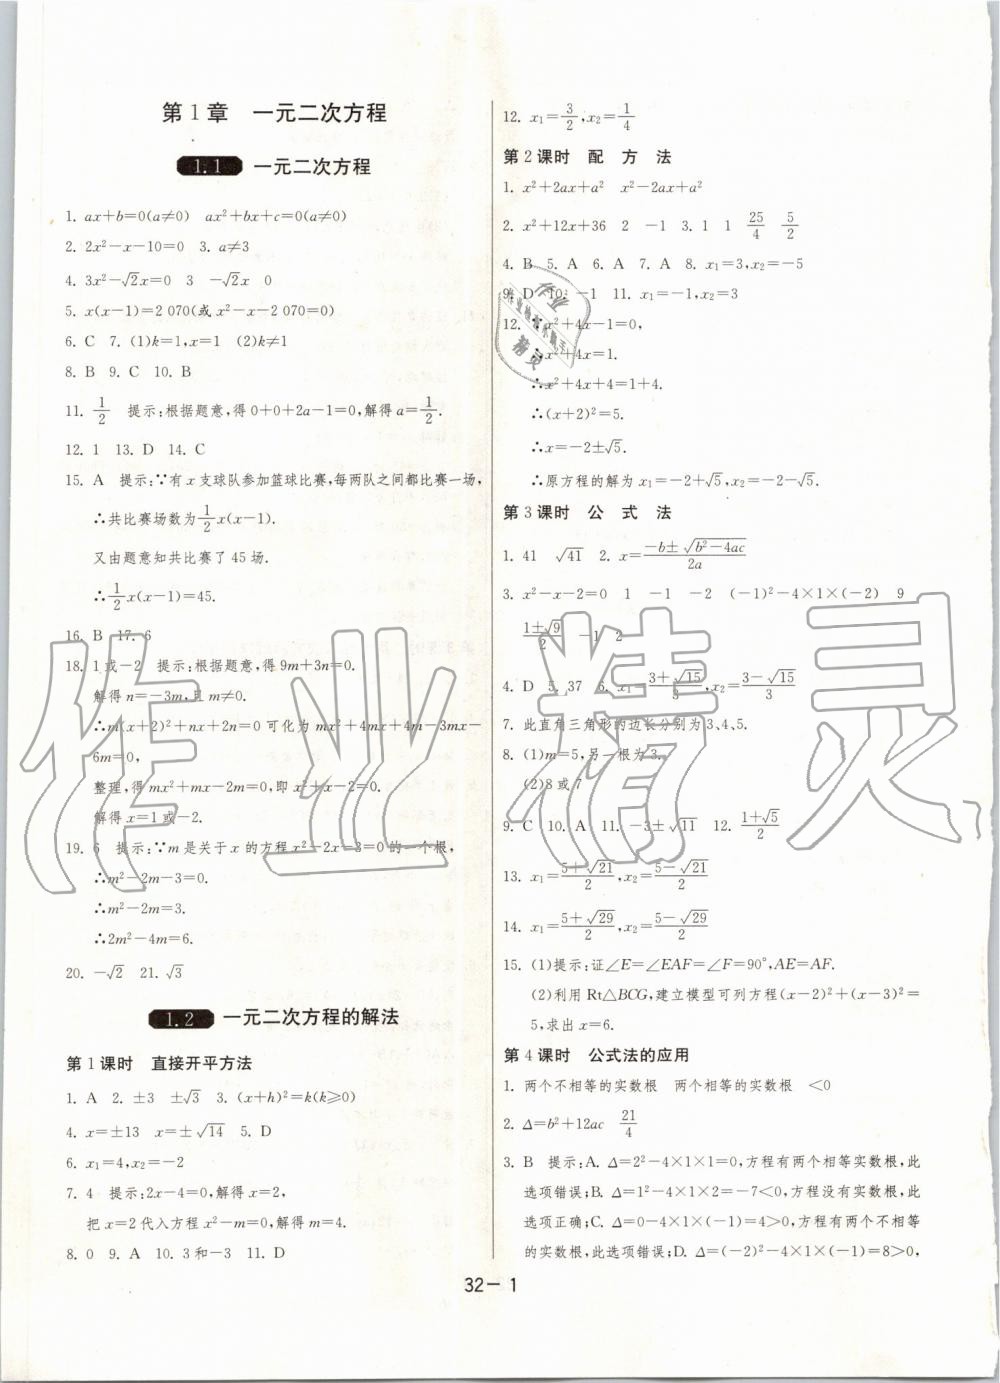 第1章 一元二次方程
1.1 一元二次方程
1. ax+b=0(a≠0) ax²+bx+c=0(a≠0)
2. 2x²-x-10=0 3. a≠3
4. 3x²-√2x=0 3 -√2x 0
5. x(x-1)=2 070(或x²-x-2 070=0)
6. C 7. (1)k=1,x=1 (2)k≠1
8. B 9. C 10. B
11. 1/2 提示:根据题意,得0+0+2a-1=0,解得a=1/2.
12. 1 13. D 14. C
15. A 提示:∵有x支球队参加篮球比赛,每两队之间都比赛一场,
∴共比赛场数为1/2x(x-1).
又由题意知共比赛了45场.
∴1/2x(x-1)=45.
16. B 17. 6
18. 1或-2 提示:根据题意,得9m+3n=0.
解得n=-3m,且m≠0.
∴m(x+2)²+nx+2n=0可化为mx²+4mx+4m-3mx-
6m=0,
整理,得mx²+mx-2m=0,即x²+x-2=0.
解得x=1或-2.
19. 6 提示:∵m是关于x的方程x²-2x-3=0的一个根,
∴m²-2m-3=0.
∴m²-2m=3.
∴2m²-4m=6.
20. -√2 21. √3
1.2 一元二次方程的解法
第1课时 直接开平方法
1. A 2. ±3 ±√3 3. (x+h)²=k(k≥0)
4. x=±13 x=±√14 5. D
6. x₁=4,x₂=-2
7. 4 提示:2x-4=0,解得x=2,
把x=2代入方程x²-m=0,解得m=4.
8. 0 9. A 10. 3和-3 11. D
12. x₁=3/2,x₂=1/4
第2课时 配方法
1. x²+2ax+a² x²-2ax+a²
2. x²+12x+36 2 -1 3. 1 1 25/4 5/2
4. B 5. A 6. A 7. A 8. x₁=3,x₂=-5
9. D 10. -1 11. x₁=-1,x₂=3
12. ∵x²+4x-1=0,
∴x²+4x=1.
∴x²+4x+4=1+4.
∴(x+2)²=5.
∴x=-2±√5.
∴原方程的解为x₁=-2+√5,x₂=-2-√5.
第3课时 公式法
1. 41 √41 2. x=(-b±√(b²-4ac))/2a
3. x²-x-2=0 1 -1 -2 (-1)²-4×1×(-2) 9
(1±√9)/2 -1 2
4. D 5. 37 6. x₁=(3+√15)/3,x₂=(3-√15)/3
7. 此直角三角形的边长分别为3、4、5.
8. (1)m=5,另一根为3.
(2)8或7
9. C 10. A 11. -3±√11 12. (1+√5)/2
13. x₁=(5+√21)/2,x₂=(5-√21)/2
14. x₁=(5+√29)/2,x₂=(5-√29)/2
15. (1)提示:证∠E=∠EAF=∠F=90°,AE=AF.
(2)利用Rt△BCG,建立模型可列方程(x-2)²+(x-3)²=
5,求出x=6.
第4课时 公式法的应用
1. 两个不相等的实数根 两个相等的实数根 <0
2. Δ=b²+12ac 21/4
3. B 提示:A. Δ=2²-4×1×1=0,方程有两个相等实数根,此
选项错误;B. Δ=1²-4×1×2=-7<0,方程没有实数根,此
选项正确;C. Δ=0-4×1×(-1)=4>0,方程有两个不相等
的实数根,此选项错误;D. Δ=(-2)²-4×1×(-1)=8>0,
32-1
作业精灵